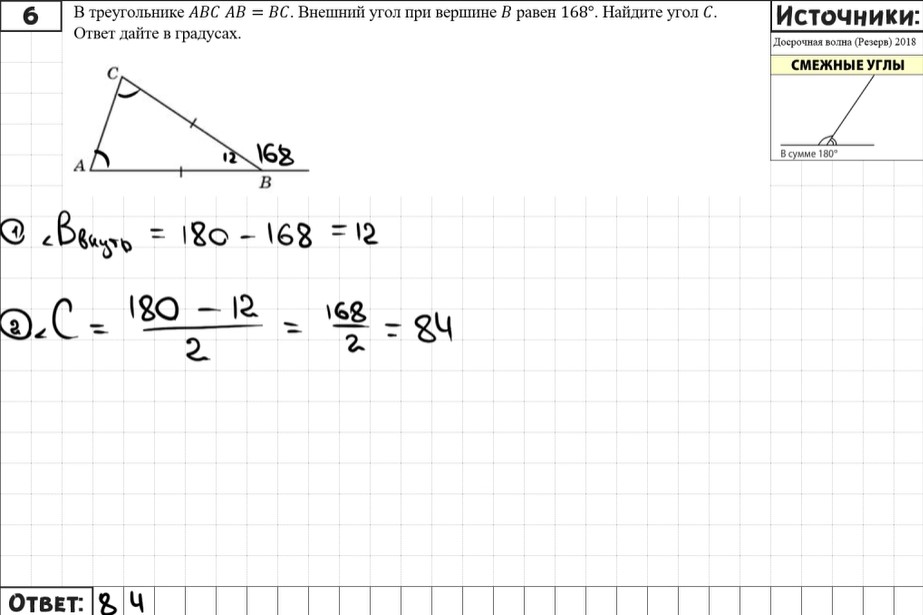 6
В треугольнике ABC AB = BC. Внешний угол при вершине B равен 168°. Найдите угол C.
Ответ дайте в градусах.
Источники:
Досрочная волна (Резерв) 2018
СМЕЖНЫЕ УГЛЫ
В сумме 180°
C
A
12 168
B
① ∠Bвнутр = 180 - 168 = 12
② ∠C = (180 - 12)/2 = 168/2 = 84
ОТВЕТ: 84